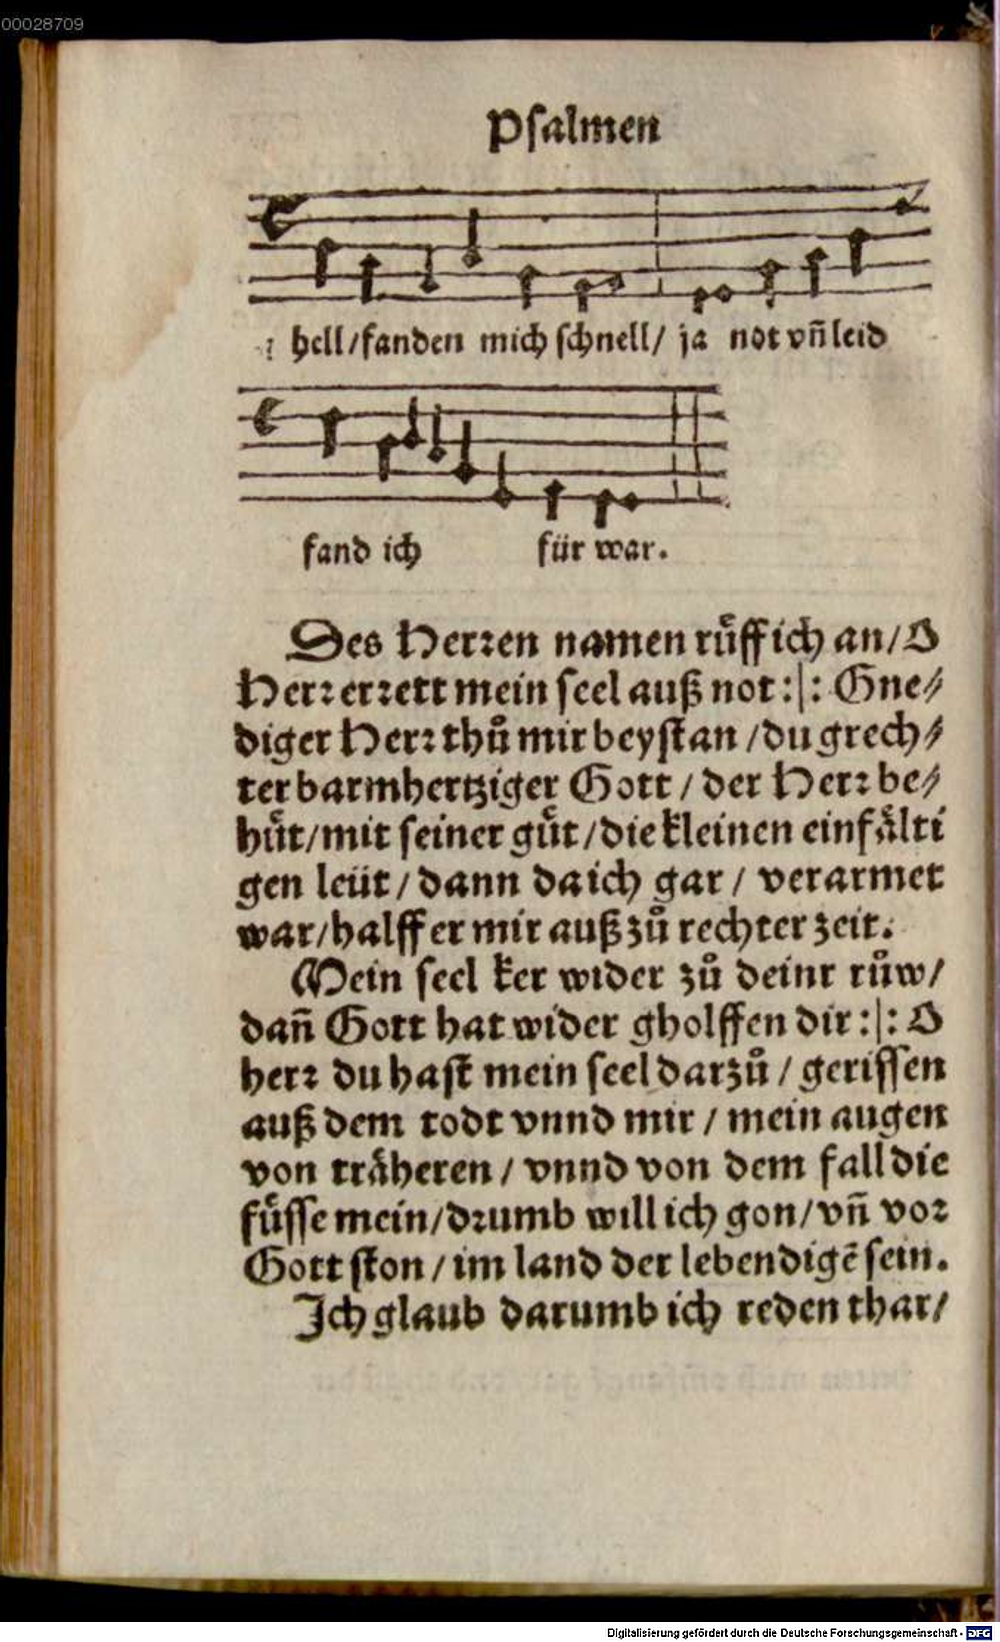 00028709
Psalmen
hell/fanden mich schnell/ ja not vñ leid
fand ich für war.
Des Herren namen rüff ich an/ O
Herr errett mein seel auß not :|: Gne⸗
diger Herr thů mir beystan /du grech⸗
ter barmhertziger Gott / der Herr be⸗
hüt/mit seiner güt/die kleinen einfälti
gen leüt / dann da ich gar / verarmet
war/halff er mir auß zů rechter zeit.
Mein seel ker wider zů deinr růw/
dañ Gott hat wider gholffen dir :|: O
herr du hast mein seel darzů / gerissen
auß dem todt vnnd mir / mein augen
von träheren / vnnd von dem fall die
füsse mein/drumb will ich gon/vñ vor
Gott ston / im land der lebendigẽ sein.
Ich glaub darumb ich reden thar/
Digitalisierung gefördert durch die Deutsche Forschungsgemeinschaft - DFG